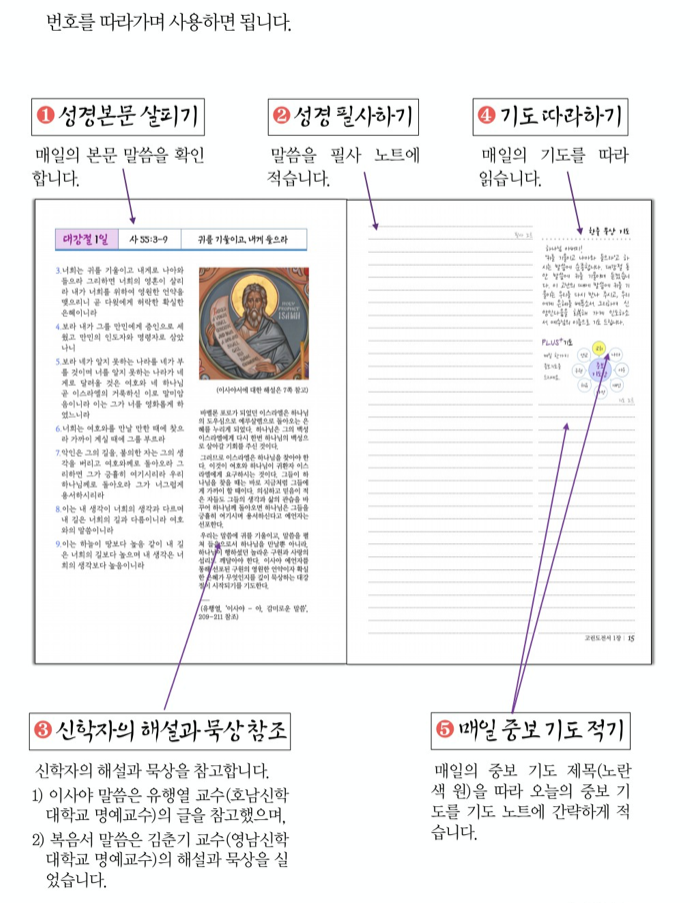 번호를 따라가며 사용하면 됩니다.
❶ 성경본문 살피기
매일의 본문 말씀을 확인
합니다.
❷ 성경 필사하기
말씀을 필사 노트에
적습니다.
❹ 기도 따라하기
매일의 기도를 따라
읽습니다.
대강절 1일
사 55:3-9
귀를 기울이고, 내게 들으라
3.너희는 귀를 기울이고 내게로 나아와
들으라 그리하면 너희의 영혼이 살리
라 내가 너희를 위하여 영원한 언약을
맺으리니 곧 다윗에게 허락한 확실한
은혜이니라
4.보라 내가 그를 만민에게 증인으로 세
웠고 만민의 인도자와 명령자로 삼았
나니
5.보라 네가 알지 못하는 나라를 네가 부
를 것이며 너를 알지 못하는 나라가 네
게로 달려올 것은 여호와 네 하나님
곧 이스라엘의 거룩하신 이로 말미암
음이니라 이는 그가 너를 영화롭게 하
였느니라
6.너희는 여호와를 만날 만한 때에 찾으
라 가까이 계실 때에 그를 부르라
7.악인은 그의 길을, 불의한 자는 그의 생
각을 버리고 여호와께로 돌아오라 그
리하면 그가 긍휼히 여기시리라 우리
하나님께로 돌아오라 그가 너그럽게
용서하시리라
8.이는 내 생각이 너희의 생각과 다르며
내 길은 너희의 길과 다름이니라 여호
와의 말씀이니라
9.이는 하늘이 땅보다 높음 같이 내 길
은 너희의 길보다 높으며 내 생각은 너
희의 생각보다 높음이니라
(이사야서에 대한 해설은 7쪽 참고)
바벨론 포로가 되었던 이스라엘은 하나님
의 도우심으로 예루살렘으로 돌아오는 은
혜를 누리게 되었다. 하나님은 그의 백성
이스라엘에게 다시 한번 하나님의 백성으
로 살아갈 기회를 주신 것이다.
그러므로 이스라엘은 하나님을 찾아야 한
다. 이것이 여호와 하나님이 귀환자 이스
라엘에게 요구하시는 것이다. 그들이 하
나님을 찾을 때는 바로 지금처럼 그들에
게 가까이 할 때이다. 의심하고 믿음이 적
은 자들도 그들의 생각과 삶의 관습을 바
꾸어 하나님께 돌아오면 하나님은 그들을
긍휼히 여기시며 용서하신다고 예언자는
선포한다.
우리는 말씀에 귀를 기울이고, 말씀을 펼
쳐 들음으로서 하나님을 만날뿐 아니라,
하나님이 행하셨던 놀라운 구원과 사랑의
섭리를 깨달아야 한다. 이사야 예언자를
통해 선포된 구원의 영원한 언약이자 확실
한 은혜가 무엇인지를 깊이 묵상하는 대강
절이 시작되기를 기도한다.
(유행열, '이사야 - 아, 감미로운 말씀',
209-211 참조)
한줄 묵상 기도
하나님 아버지!
PLUS+기도
고린도전서 1장 | 15
❸ 신학자의 해설과 묵상 참조
신학자의 해설과 묵상을 참고합니다.
1) 이사야 말씀은 유행열 교수(호남신학
대학교 명예교수)의 글을 참고했으며,
2) 복음서 말씀은 김춘기 교수(영남신학
대학교 명예교수)의 해설과 묵상을 실
었습니다.
❺ 매일 중보 기도 적기
매일의 중보 기도 제목(노란
색 원)을 따라 오늘의 중보 기
도를 기도 노트에 간략하게 적
습니다.